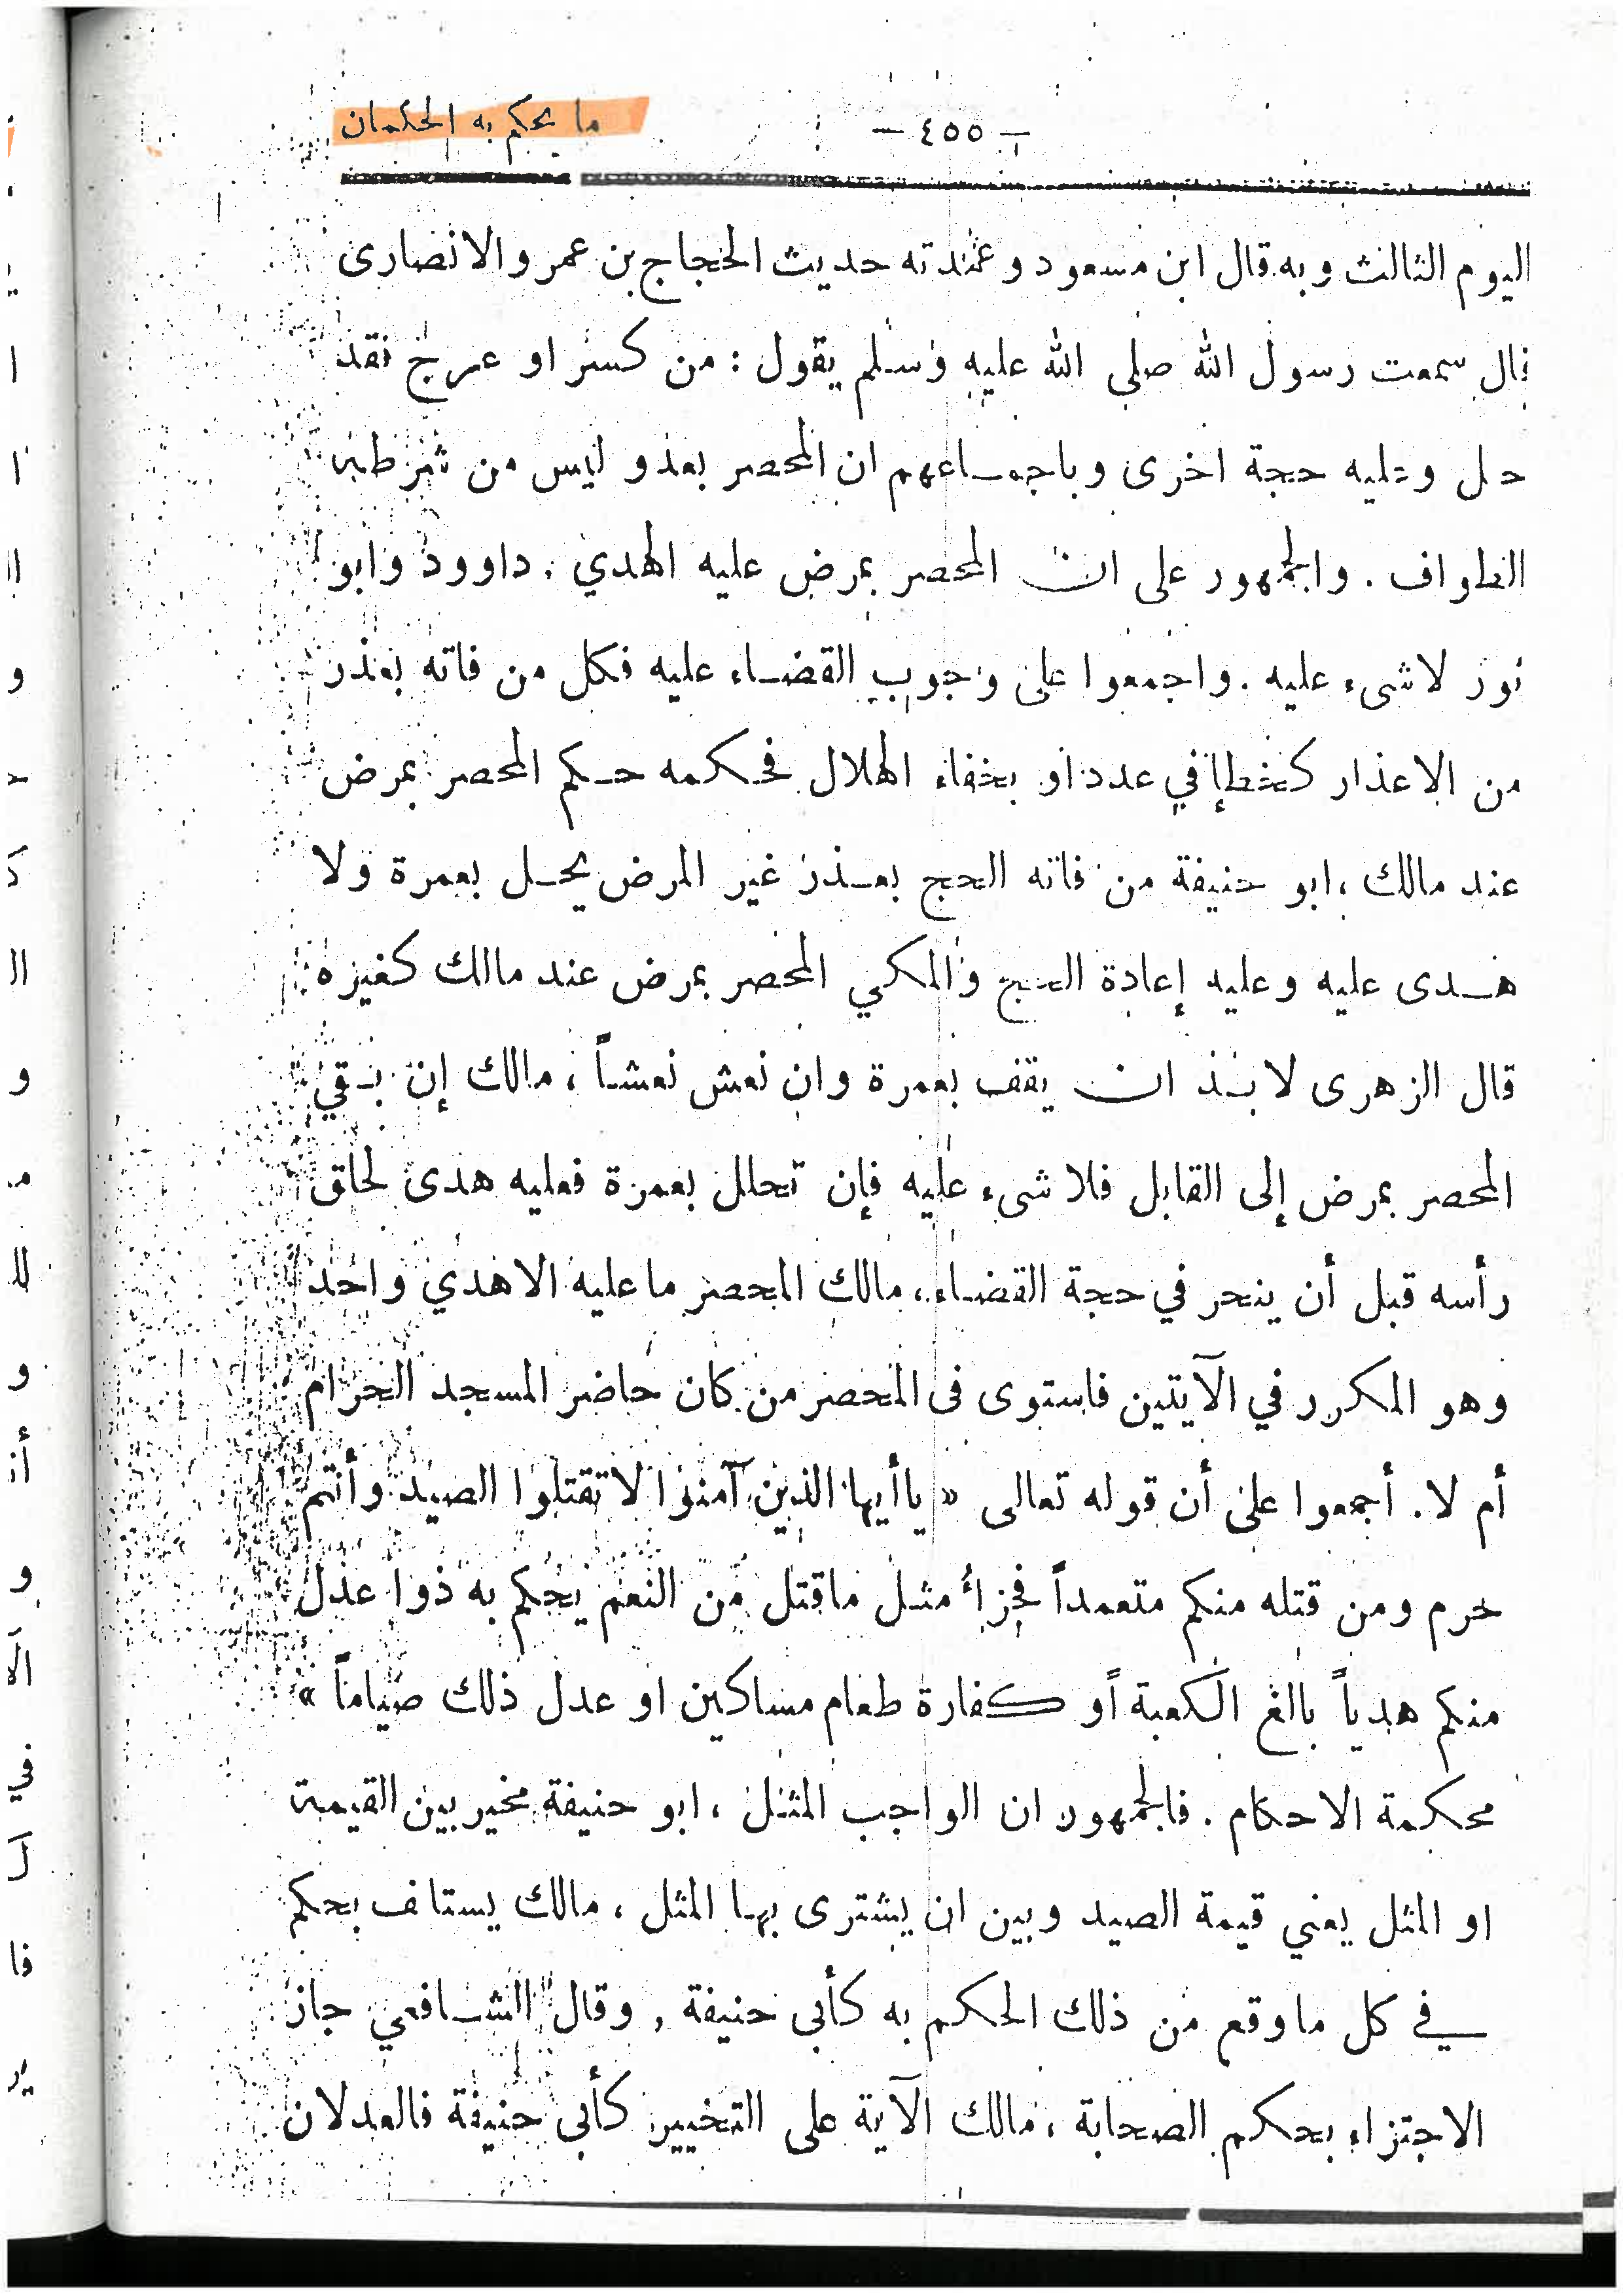 ما يحكم به الحكمان
— ٤٥٥ —
اليوم الثالث وبه قال ابن مسعود وعمدته حديث الحجاج بن عمرو الانصارى
قال سمعت رسول الله صلى الله عليه وسلم يقول : من كسر او عرج فقد
حل وعليه حجة اخرى وباجماعهم ان المحصر بعذو ليس من شرطه
الطواف . والجمهور على ان المحصر بمرض عليه الهدي ، داوود وابو
ثور لاشىء عليه . واجمعوا على وجوب القضاء عليه فكل من فاته بعذر
من الاعذار كخطإ في عدد او بخفاء الهلال فحكمه حكم المحصر بمرض
عند مالك ، ابو حنيفة من فاته الحج بعذر غير المرض يحل بعمرة ولا
هدى عليه وعليه إعادة الحج والمكي المحصر بمرض عند مالك كغيره
قال الزهرى لا بد ان يقف بعمرة وان نعش نعشاً ، مالك إن بقي
المحصر بمرض إلى القابل فلا شىء عليه فإن تحلل بعمرة فعليه هدى لحلق
رأسه قبل أن ينحر في حجة القضاء ، مالك المحصر ما عليه الا هدي واحد
وهو المكرر في الآيتين فاستوى فى المحصر من كان حاضر المسجد الحرام
أم لا . أجمعوا على أن قوله تعالى « ياأيها الذين آمنوا لا تقتلوا الصيد وأنتم
حرم ومن قتله منكم متعمداً فجزأ مثل ماقتل من النعم يحكم به ذوا عدل
منكم هدياً بالغ الكعبة أو كفارة طعام مساكين او عدل ذلك صياماً »
محكمة الاحكام . فالجمهور ان الواجب المثل ، ابو حنيفة مخير بين القيمة
او المثل يعني قيمة الصيد وبين ان يشترى بها المثل ، مالك يستانف بحكم
في كل ما وقع من ذلك الحكم به كأبى حنيفة , وقال الشافعي جاز
الاجتزاء بحكم الصحابة ، مالك الآية على التخيير كأبى حنيفة فالعدلان